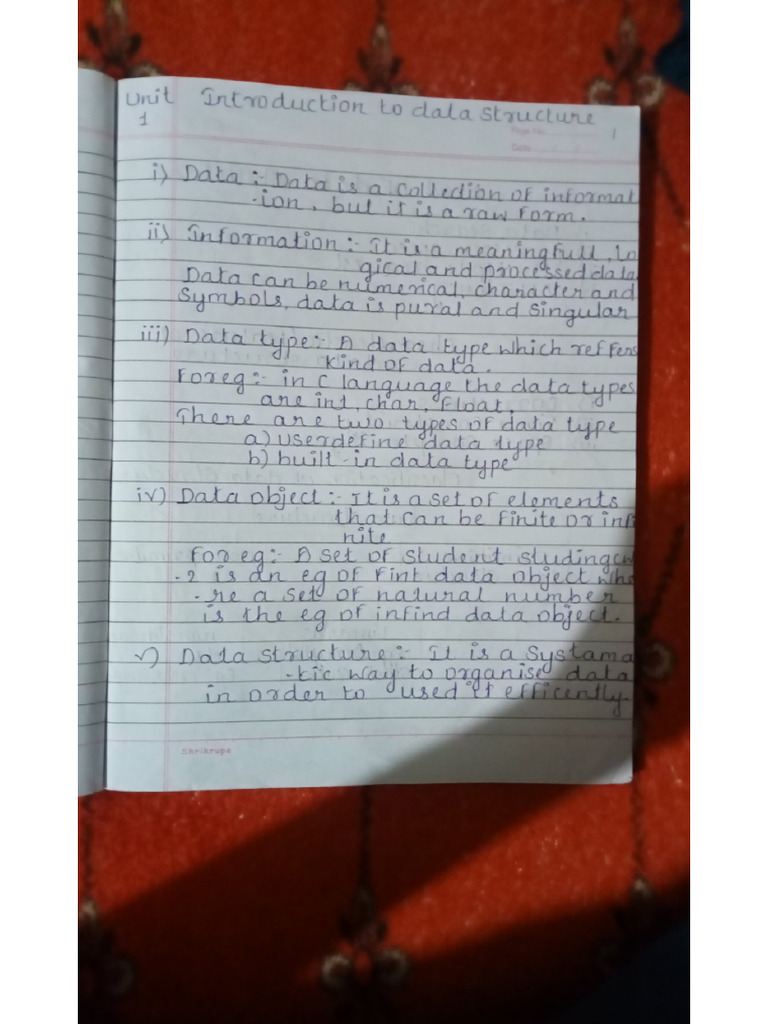 Unit Introduction to data structure
1
Page No. 1
Date
i) Data :- Data is a collection of informat
-ion, but it is a raw form.
ii) Information :- It is a meaningfull, lo
gical and processed data
Data can be numerical, character and
Symbols, data is pural and singular
iii) Data type :- A data type which reffers
kind of data.
For eg :- in C language the data types
are int, char, float,
There are two types of data type
a) userdefine data type
b) built-in data type
iv) Data object :- It is a set of elements
that can be finite or infi
nite
for eg :- A set of student studing
-2 is an eg of fint data object whe
-re a set of natural number
is the eg of infind data object.
v) Data structure :- It is a Systama
-tic way to organise data
in order to used it efficently.
Shrikrupa